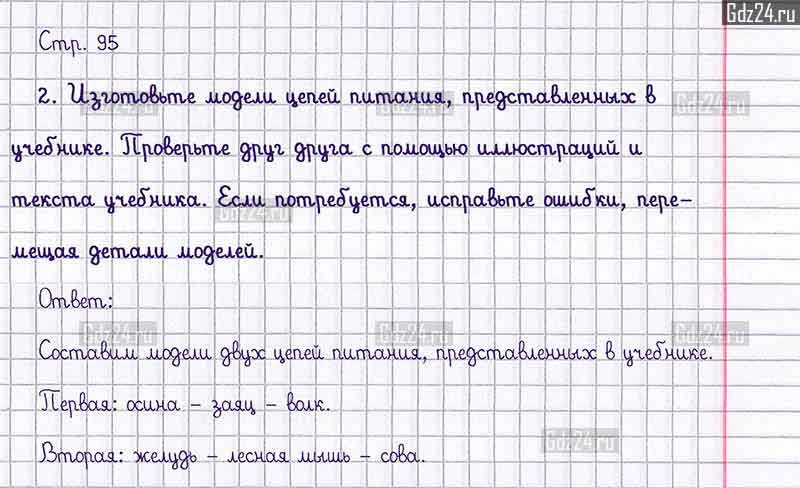 Gdz24.ru
Стр. 95
2. Изготовьте модели цепей питания, представленных в
Gdz24.ru
учебнике. Проверьте друг друга с помощью иллюстраций и
текста учебника. Если потребуется, исправьте ошибки, пере-
Gdz24.ru
мещая детали моделей.
Ответ:
Gdz24.ru Gdz24.ru Gdz24.ru
Составим модели двух цепей питания, представленных в учебнике.
Первая: осина – заяц – волк.
Gdz24.ru
Вторая: желудь – лесная мышь – сова.